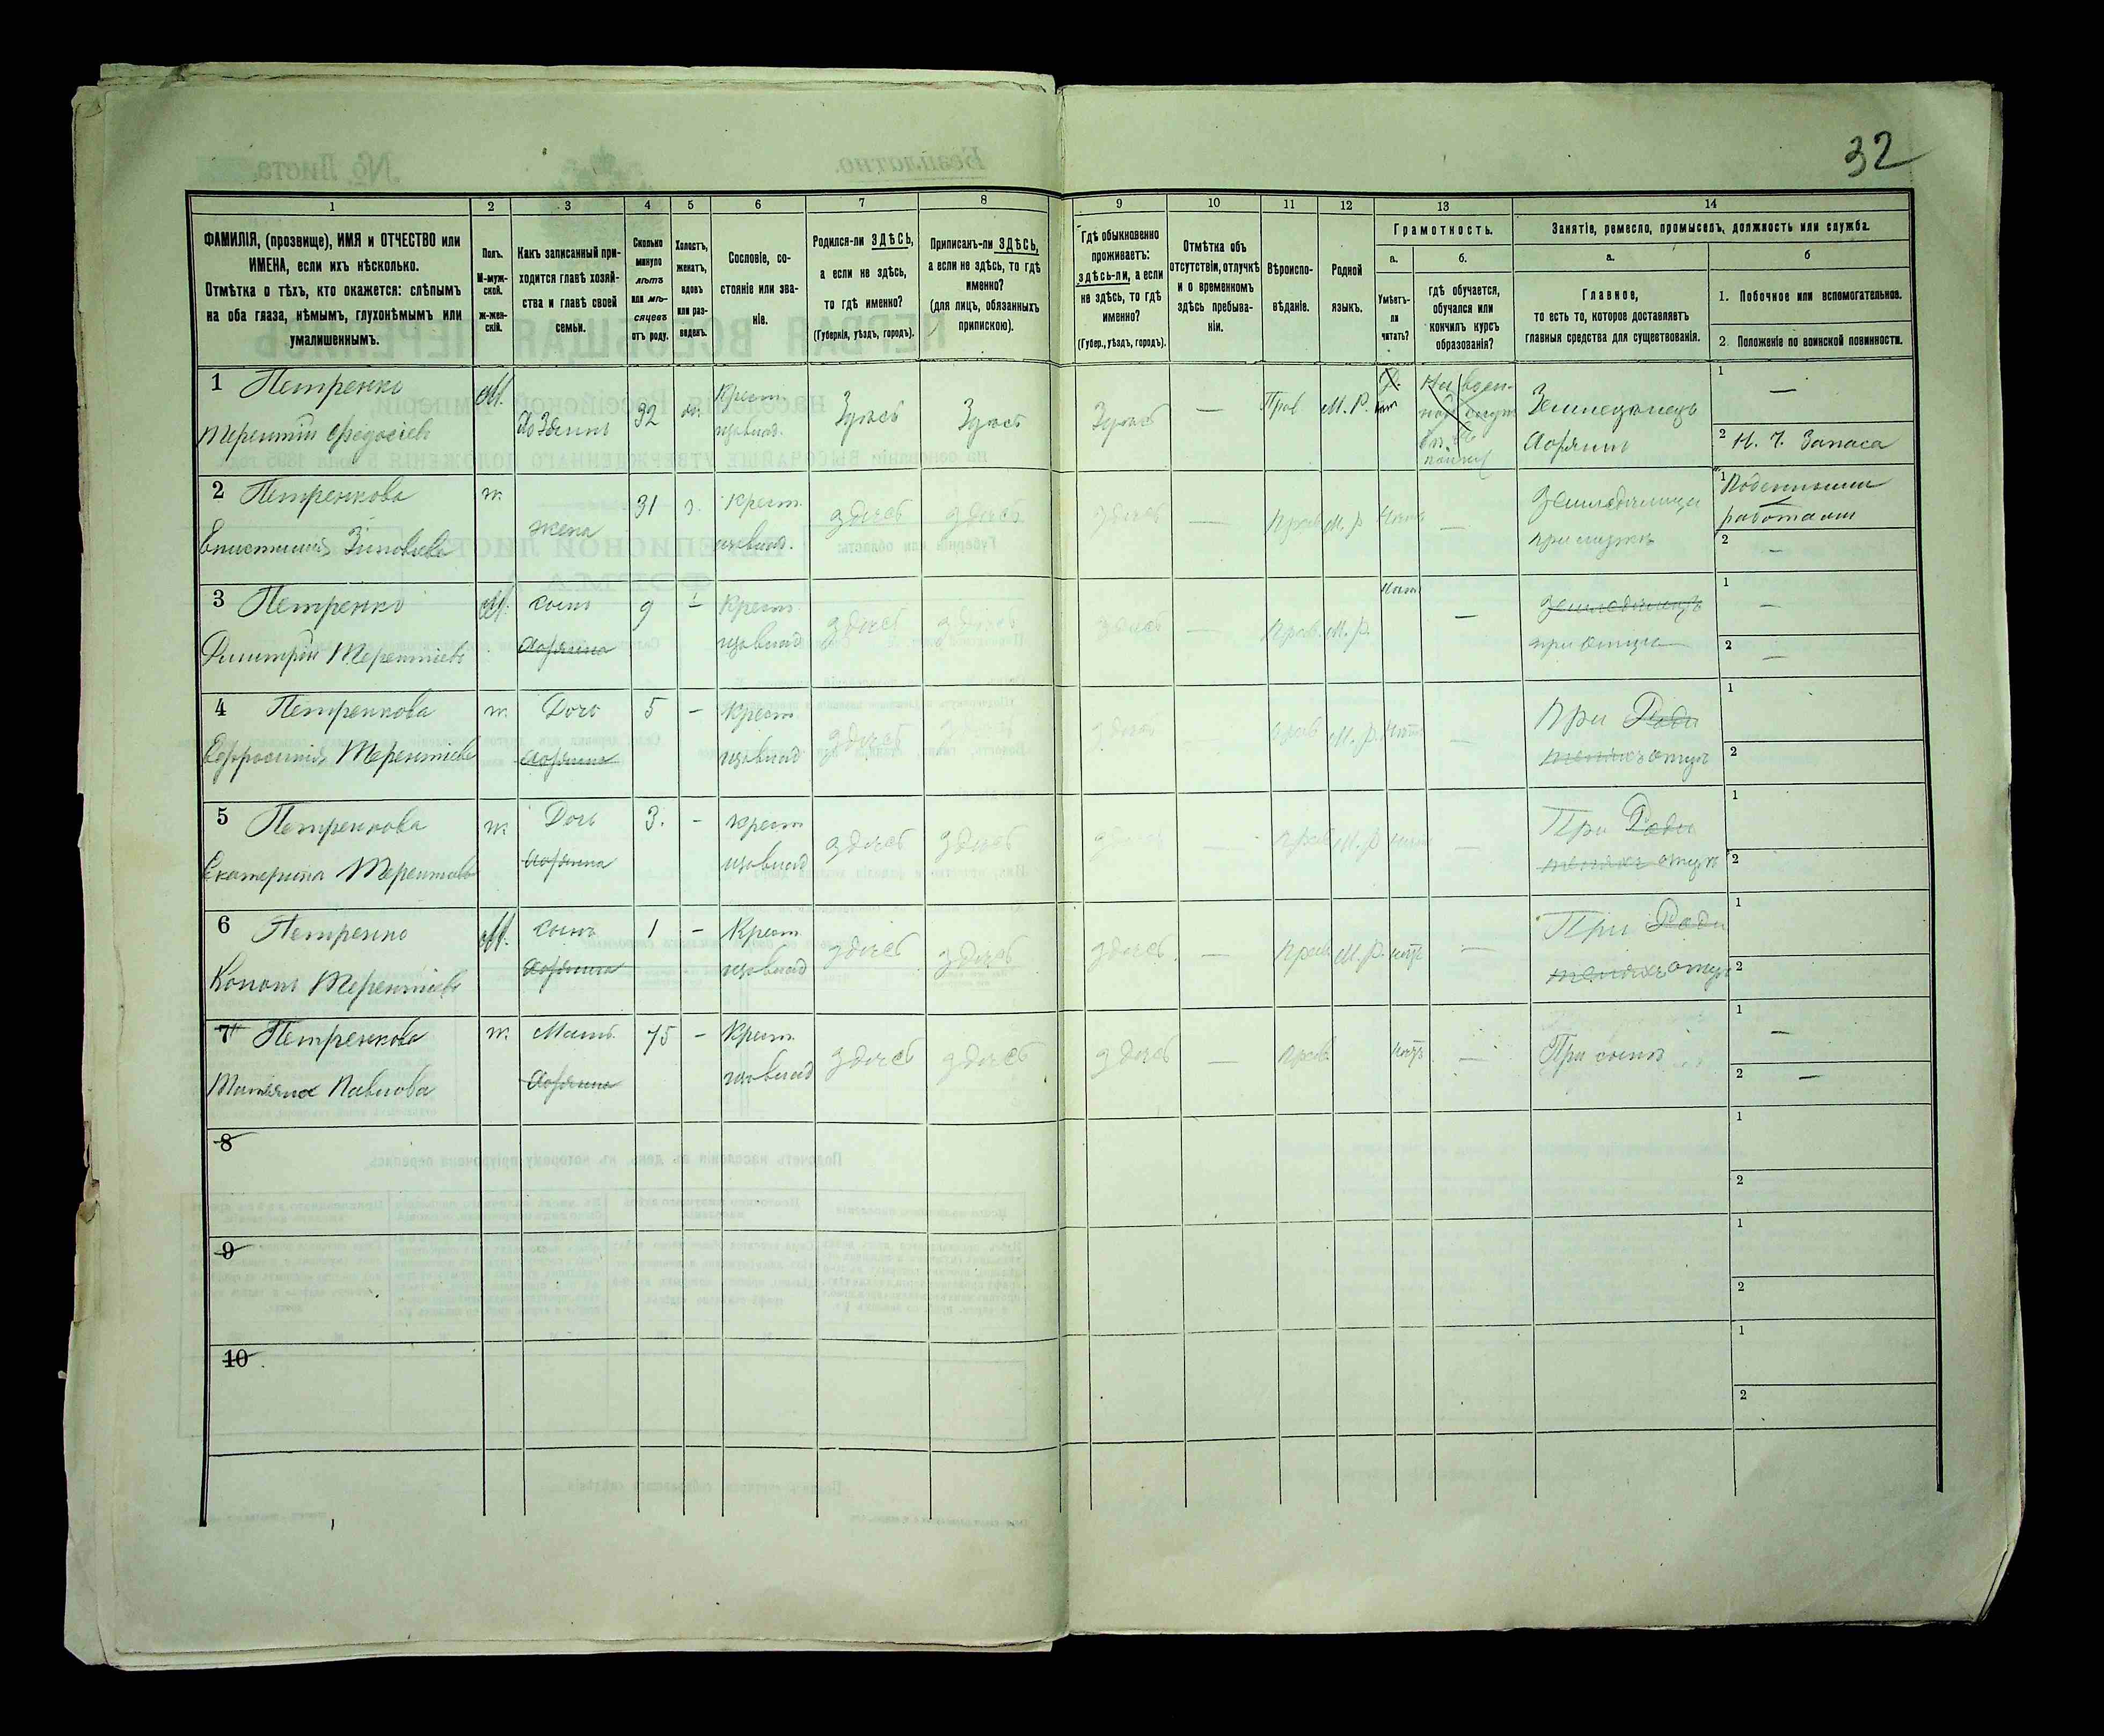 32
1 2 3 4 5 6 7 8 9 10 11 12 13 14
ФАМИЛІЯ, (прозвище), ИМЯ и ОТЧЕСТВО или
ИМЕНА, если ихъ нѣсколько.
Отмѣтка о тѣхъ, кто окажется: слѣпымъ
на оба глаза, нѣмымъ, глухонѣмымъ или
умалишеннымъ.
Полъ.
М-муж-
ской.
Ж-жен-
скій.
Какъ записанный при-
ходится главѣ хозяй-
ства и главѣ своей
семьи.
Сколько
минуло
лѣтъ
или мѣ-
сяцевъ
отъ роду.
Холостъ,
женатъ,
вдовъ
или раз-
веденъ.
Сословіе, со-
стояніе или зва-
ніе.
Родился-ли ЗДѢСЬ,
а если не здѣсь,
то гдѣ именно?
(Губернія, уѣздъ, городъ).
Приписанъ-ли ЗДѢСЬ,
а если не здѣсь, то гдѣ
именно?
(для лицъ, обязанныхъ
припискою).
Гдѣ обыкновенно
проживаетъ:
здѣсь-ли, а если
не здѣсь, то гдѣ
именно?
(Губер., уѣздъ, городъ).
Отмѣтка объ
отсутствіи, отлучкѣ
и о временномъ
здѣсь пребыва-
ніи.
Вѣроиспо-
вѣданіе.
Родной
языкъ.
Грамотность.
а.
Умѣетъ-
ли
читать?
б.
гдѣ обучается,
обучался или
кончилъ курсъ
образованія?
Занятіе, ремесло, промыселъ, должность или служба.
а.
Главное,
то есть то, которое доставляетъ
главныя средства для существованія.
б
1. Побочное или вспомогательное.
2. Положеніе по воинской повинности.
1 Петренко
Терентій Федосіевъ
М. Хозяинъ 32 Крест.
Здѣсь Здѣсь Здѣсь — Прав. М. Р.
Земледѣлецъ
Хозяинъ
1 —
2 Н. Ч. Запаса
2 Петренкова
Епистимія Зиновіева
ж. жена 31 з. Крест.
здѣсь здѣсь здѣсь — Прав. М. р нѣтъ —
при мужѣ
1 Поденными
работами
2 —
3 Петренко
Димитрій Терентіевъ
М. сынъ 9 – Крест.
хозяина
здѣсь здѣсь здѣсь — Прав. М. р. нѣтъ —
земледѣлецъ
при отцѣ
1 —
2 —
4 Петренкова
Ефросинія Терентіева
ж. Дочь 5 – Крест.
хозяина
здѣсь здѣсь здѣсь — прав М. р. нѣтъ —
При Роди
теляхъ отцѣ
1
2
5 Петренкова
Екатерина Терентіева
ж. Дочь 3. – крест
хозяина
здѣсь здѣсь здѣсь — прав М. р нѣтъ —
При Роди
теляхъ отцѣ
1
2
6 Петренко
Кононъ Терентіевъ
М. сынъ 1 – Крест.
хозяина
здѣсь здѣсь здѣсь — прав М. р. нѣтъ —
При Роди
теляхъ отцѣ
1
2
7 Петренкова
Татьяна Павлова
ж. Мать 75 – Крест.
хозяина
здѣсь здѣсь здѣсь — прав. нѣтъ —
При сынѣ
1 —
2 —
8
1
2
9
1
2
10
1
2